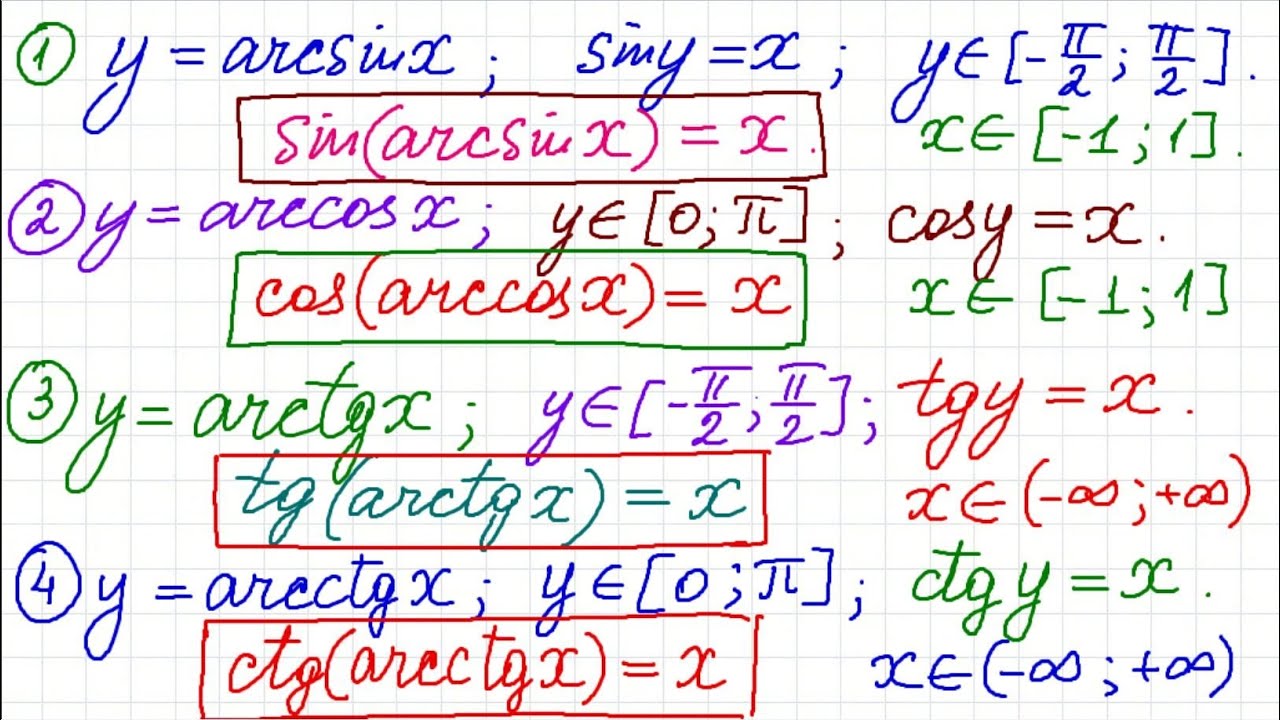 ① y = arcsinx ; siny = x ; y ∈ [-π/2 ; π/2].
sin(arcsinx) = x. x ∈ [-1 ; 1].
② y = arccosx ; y ∈ [0 ; π] ; cosy = x.
cos(arccosx) = x x ∈ [-1 ; 1]
③ y = arctgx ; y ∈ [-π/2 ; π/2] ; tgy = x.
tg(arctgx) = x x ∈ (-∞ ; +∞)
④ y = arcctgx ; y ∈ [0 ; π] ; ctgy = x.
ctg(arcctgx) = x x ∈ (-∞ ; +∞)